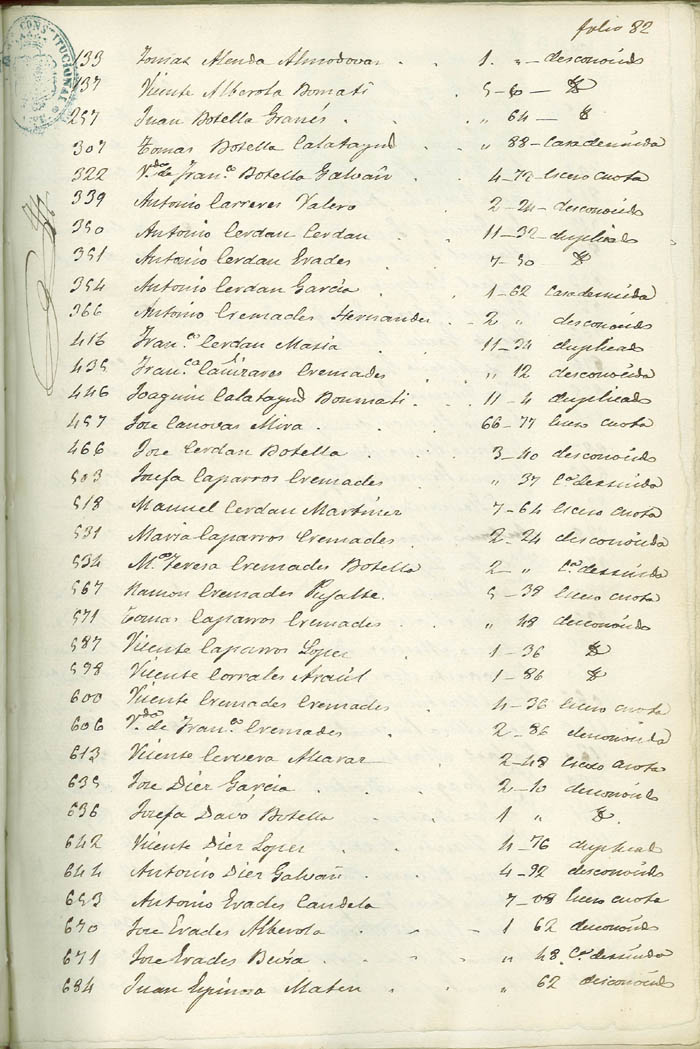 folio 82
CONSTITUCIONAL
133 Tomas Alenda Almodovar . . 1. „ – desconocido
137 Vicente Alberola Bonmati . 5-60 –
297 Juan Botella Granés . . „ 64 –
307 Tomas Botella Calatayud . „ 88 – Casa derruida
322 V.da de Fran.co Botella Galvañ . 4-72 exceso cuota
339 Antonio Carreres Valero . 2-24 – desconocido
350 Antonio Cerdan Cerdan . . 11-32 – duplicado
351 Antonio Cerdan Evades . . 7-50
354 Antonio Cerdan Garcia . . 1-62 Casa derruida
366 Antonio Cremades Hernandez . . 2 „ desconocido
416 Fran.co Cerdan Masia . . 11-24 duplicado
435 Fran.ca Cañizares Cremades . „ 12 desconocida
446 Joaquin Calatayud Bonmati . . 11-4 duplicado
457 Jose Canovas Mira . . . 66-77 exceso cuota
466 Jose Cerdan Botella . . 3-40 desconocido
503 Josefa Caparros Cremades . „ 37 C.a derruida
518 Manuel Cerdan Martinez 7-64 exceso cuota
531 Maria Caparros Cremades . 2-24 desconocida
534 M.a Teresa Cremades Botella 2- „ C.a derruida
567 Ramon Cremades Pujalte . 5-38 exceso cuota
571 Tomas Caparros Cremades . „ 48 desconocido
587 Vicente Caparros Lopez . 1-36
598 Vicente Corrales Araúl . 1-86
600 Vicente Cremades Cremades . 4-36 exceso cuota
606 V.da de Fran.co Cremades . 2-86 desconocida
613 Vicente Cervera Alcaraz . 2-48 exceso cuota
635 Jose Dier Garcia . . . 2-10 desconocido
636 Josefa Davó Botella . . 1 „
642 Vicente Dier Lopez . . 4-76 duplicado
644 Antonio Dier Galvañ . . 4-92 desconocido
653 Antonio Evades Candela 7-08 exceso cuota
670 Jose Evades Alberola . . 1 62 desconocido
671 Jose Evades Bevia . . . „ 48 C.a derruida
684 Juan Espinosa Mater . . „ 62 desconocido